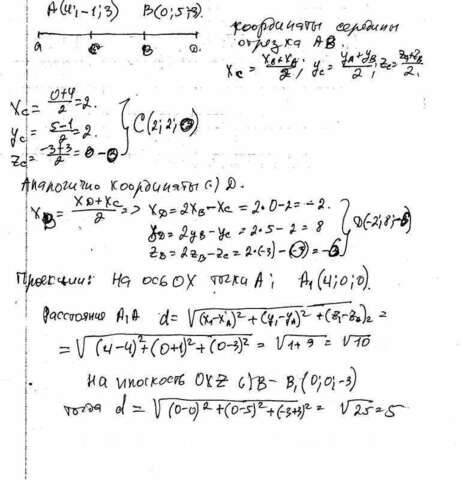 A(4;-1;3) B(0;5;-3).
a C B D.
координаты середины
отрезка AB:
x_C = (x_B+x_A)/2; y_C = (y_A+y_B)/2; z_C = (z_A+z_B)/2.
x_C = (0+4)/2 = 2.
y_C = (5-1)/2 = 2.
z_C = (-3+3)/2 = 0
C(2;2;0)
Аналогично координаты (·) D.
x_B = (x_D+x_C)/2 => x_D = 2x_B - x_C = 2·0-2 = -2.
y_D = 2y_B - y_C = 2·5-2 = 8
z_D = 2z_B - z_C = 2·(-3) - = -6
D(-2;8;-6)
Проекции: на ось OX точка A; A₁(4;0;0).
Расстояние A₁A d = √((x₁-x_A)²+(y₁-y_A)²+(z₁-z_A)² =
= √((4-4)²+(0+1)²+(0-3)² = √1+9 = √10
на плоскость OXZ (·)B - B₁(0;0;-3)
тогда d = √((0-0)²+(0-5)²+(-3+3)² = √25 = 5